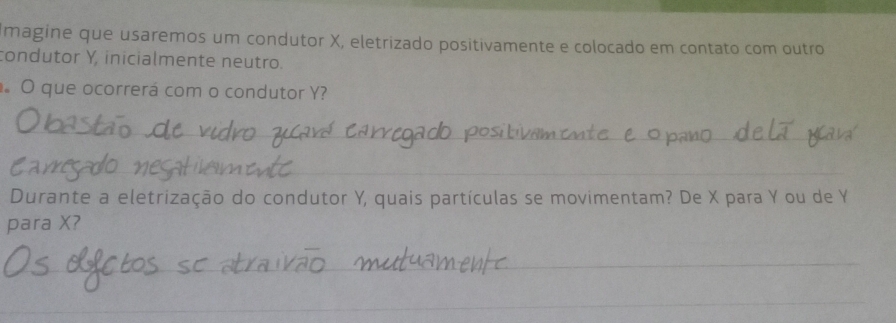 Imagine que usaremos um condutor X, eletrizado positivamente e colocado em contato com outro
condutor Y, inicialmente neutro.
O que ocorrerá com o condutor Y?
O bastão de vidro ficará carregado positivamente e o pano de lã ficará
carregado negativamente
Durante a eletrização do condutor Y, quais partículas se movimentam? De X para Y ou de Y
para X?
Os se atraivão mutuamente